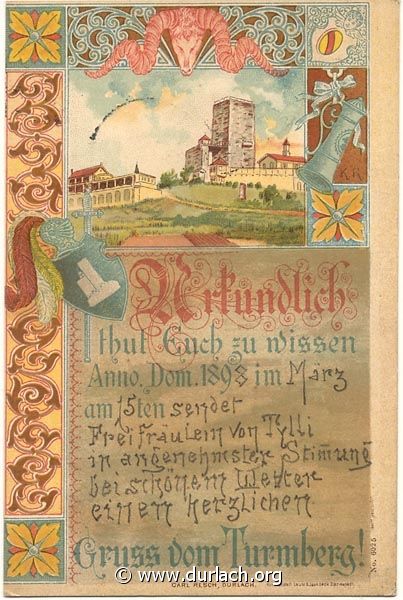 K R
Urkundlich
thut Euch zu wissen
Anno. Dom. 1898 im März
am 15ten sendet
Freifräulein von Tylli
in angenehmster Stim̅ung
bei schönem Wetter
einen herzlichen
Gruss vom Turmberg!
CARL RESCH, DURLACH.
No. 6025
© www.durlach.org